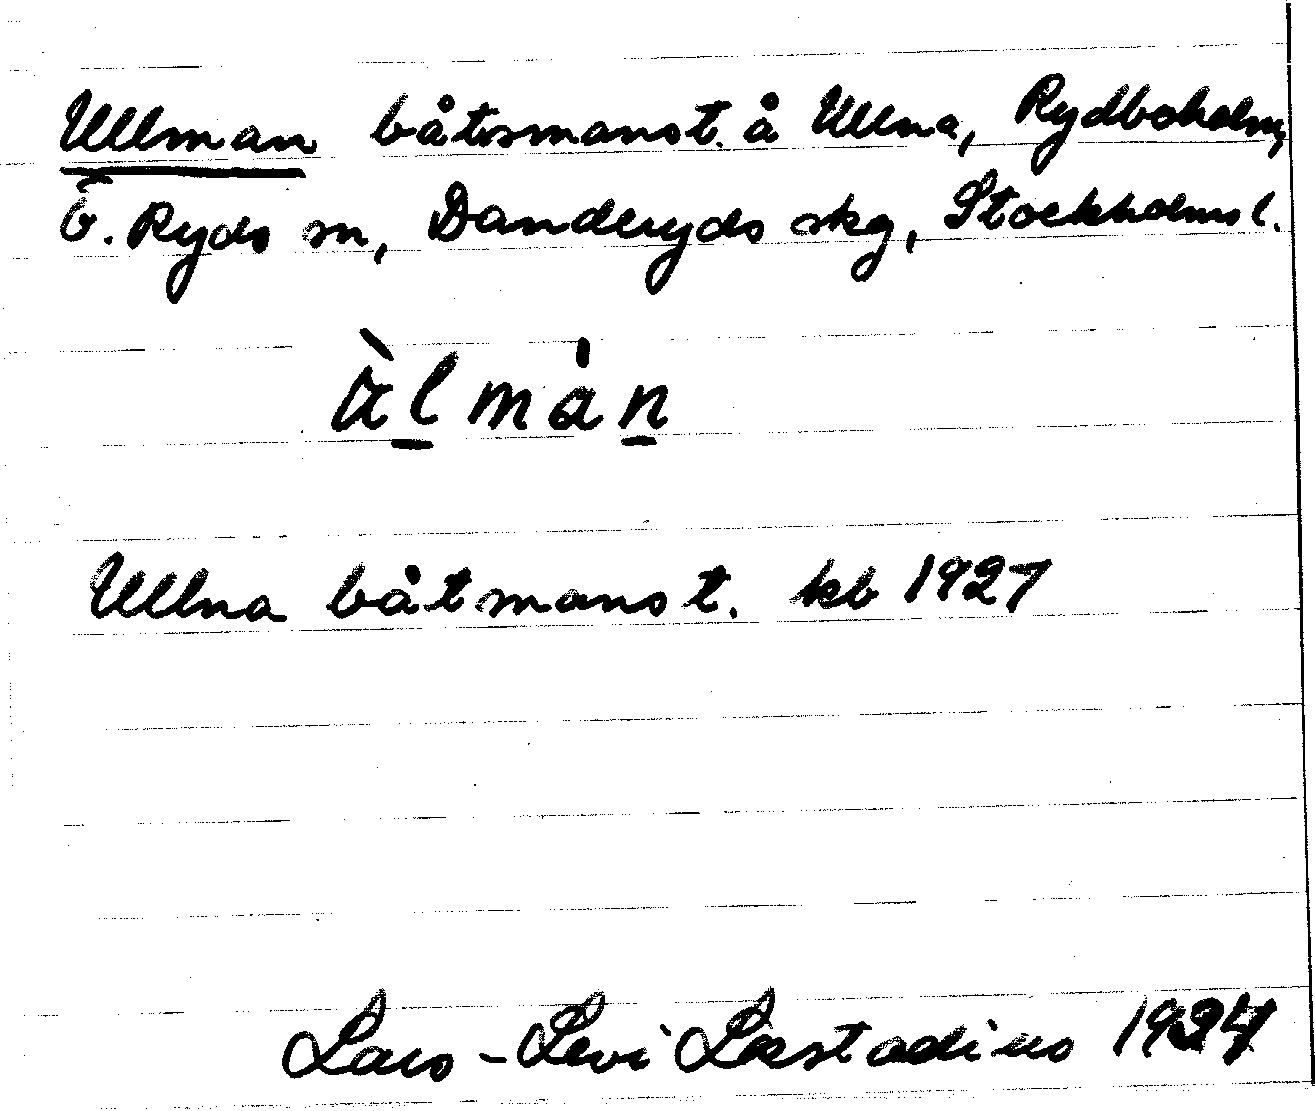 Ullman båtsmanst. å Ullna, Rydboholm,
Ö. Ryds sn, Danderyds skg, Stockholms l.
àlmán
Ullna båtmanst. kb 1927
Lars-Levi Læstadius 1934